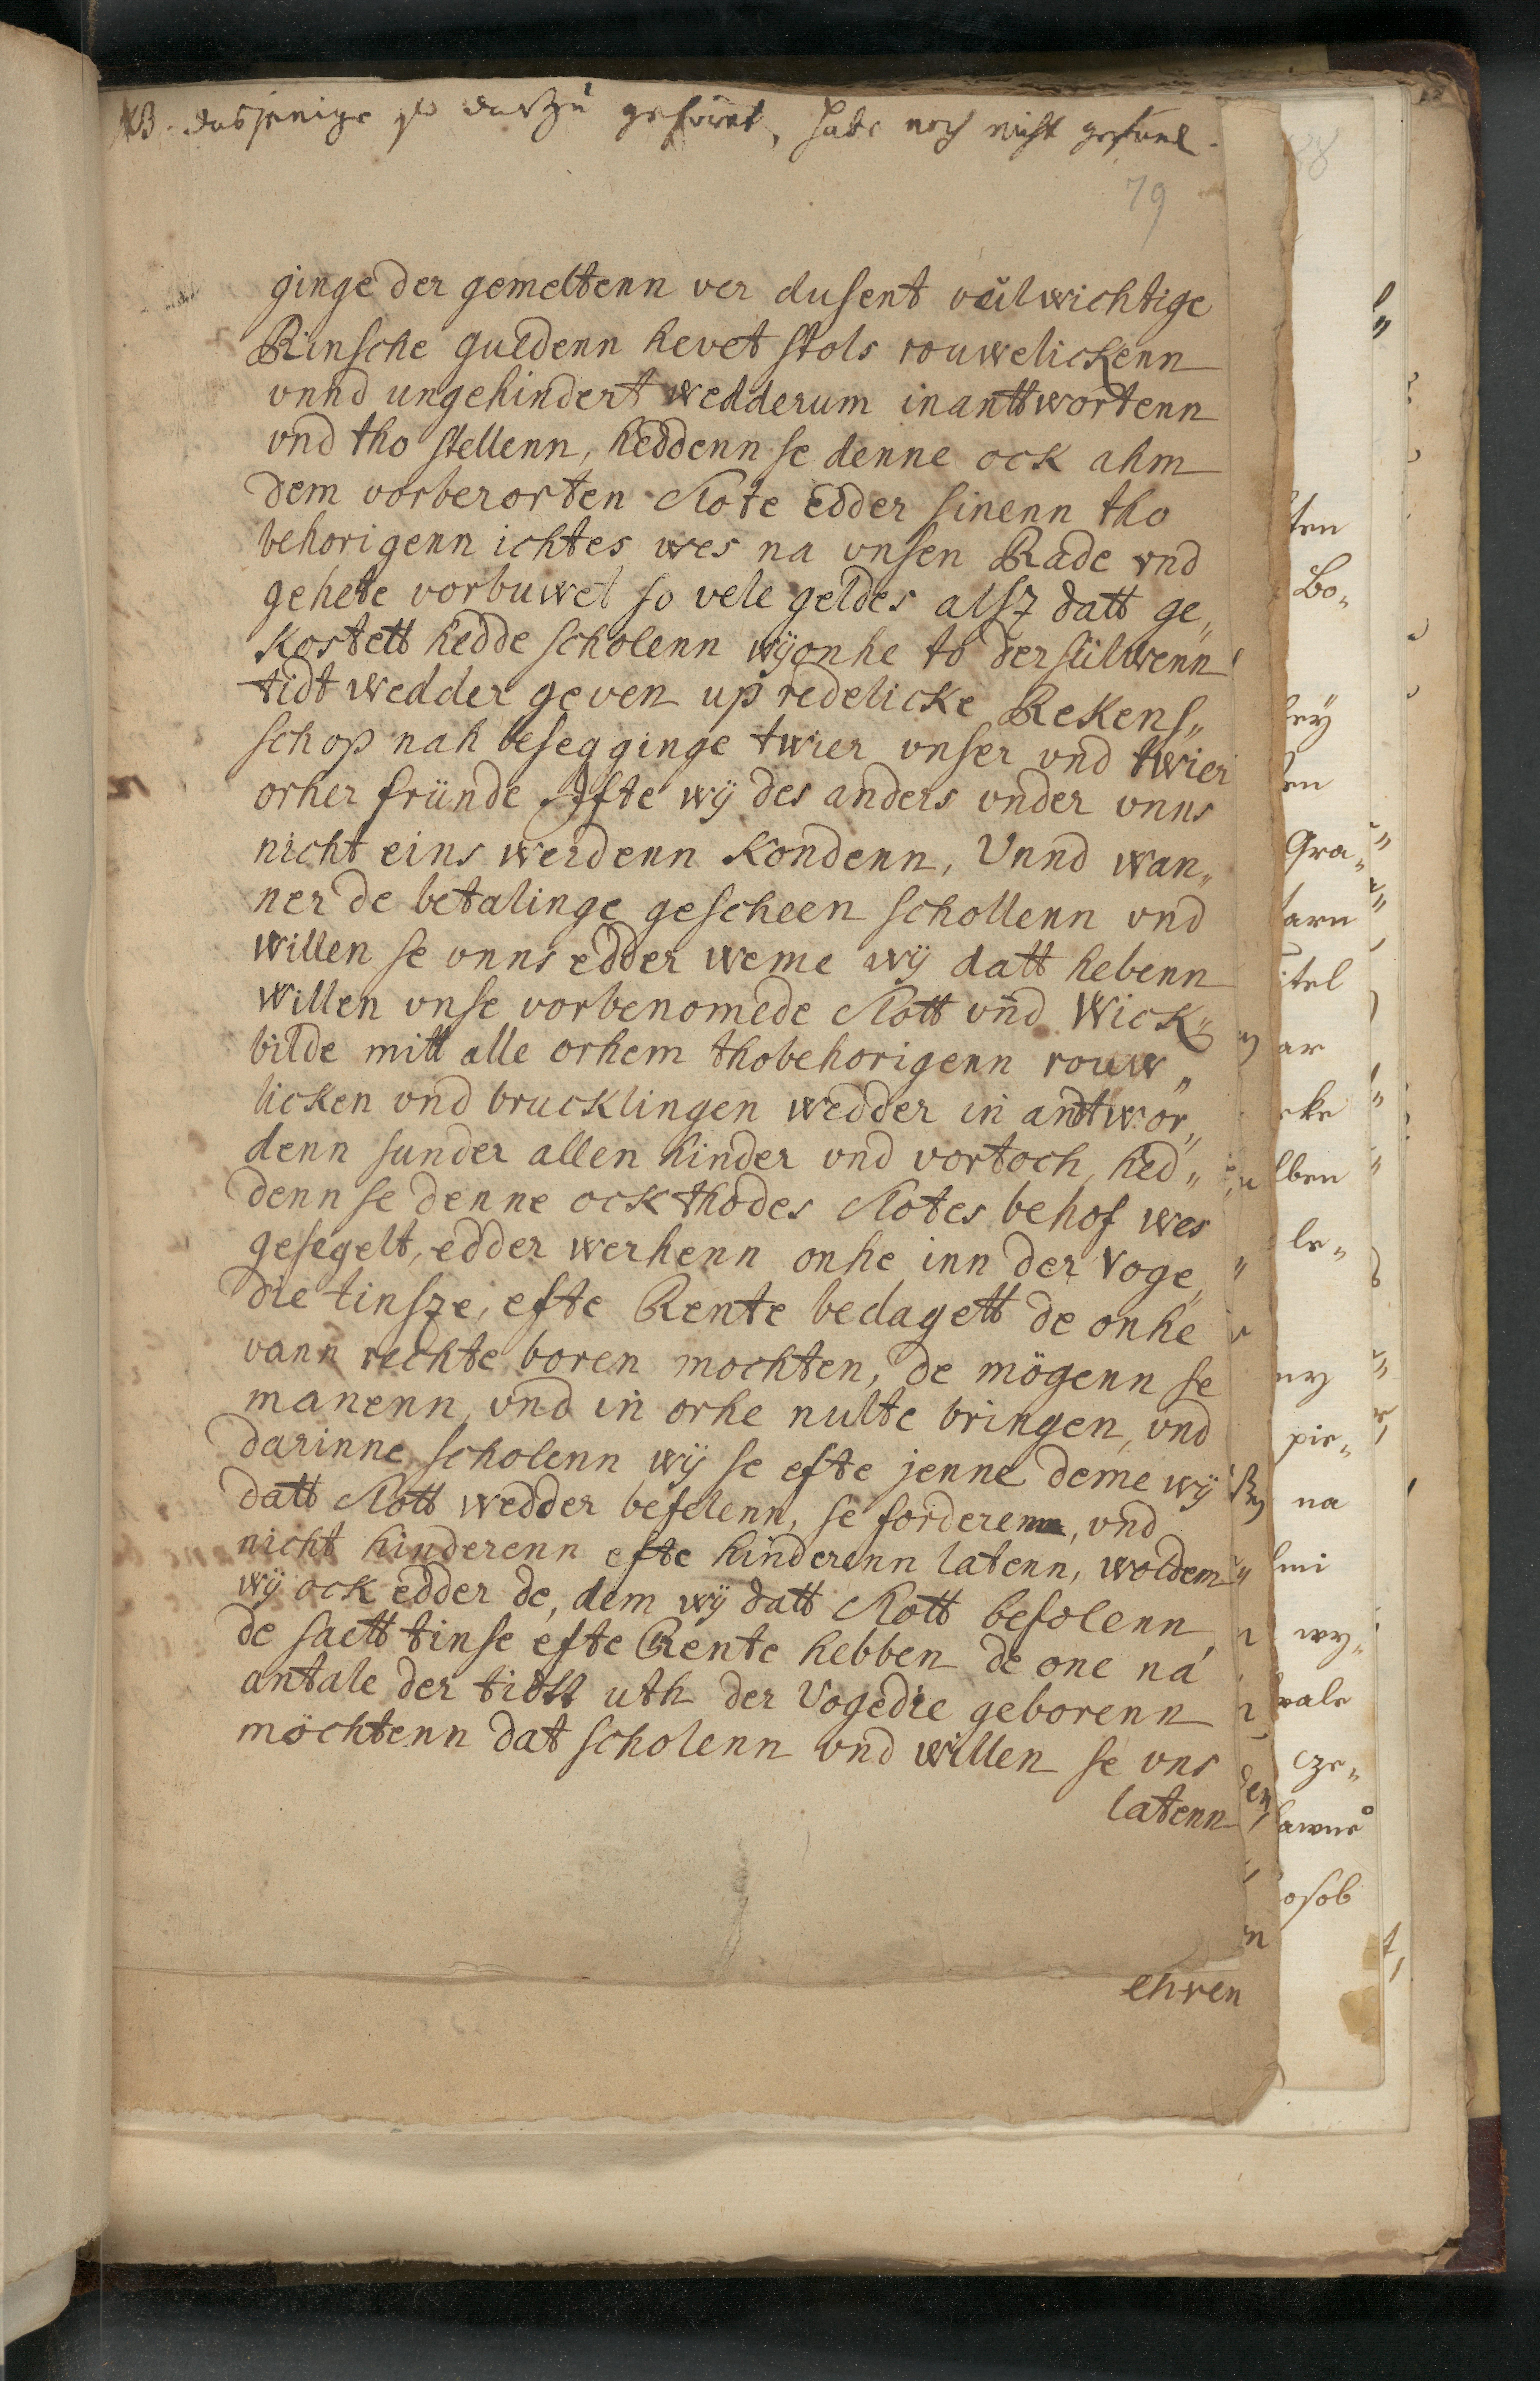 NB. dasjenige so darzu gehöret, habe noch nicht gefund.
79
ginge der gemeltenn ver dusent vulwichtige
Rinsche guldenn hevet stols rouwelickenn
vnnd ungehindert wedderum inanttwortenn
vnd tho stellenn, heddenn se denne ock ahm
dem vorberorten Slote edder sinenn tho
behorigenn ichtes wes na vnsen Rade vnd
gehete vorbuwet so vele geldes alsz datt ge„
kostett hedde scholenn wÿ onhe to der sülwenn
tidt wedder geven up redelicke Rekens„
schop nah besegginge twier vnser vnd twier
orher fründe Iffte wÿ des anders vnder vnns
nicht eins werdenn kondenn, Vnnd wan„
ner de betalinge gescheen schollenn vnd
willen se vnns edder weme wÿ datt hebenn
willen vnse vorbenomede Slott vnd Wick„
bilde mitt alle orhem thobehorigenn rouw„
licken vnd brucklingen wedder in antwor„
denn sunder allen hinder vnd vortoch, hed„
denn se denne ock thodes Slotes behof wes
gesegelt, edder werhenn onhe inn der Voge„
die tinsze, efte Rente bedagett de onhe
vann rechte boren mochten, de mögenn se
manenn, vnd in orhe nutte bringen, vnd
darinne scholenn wÿ se efte jenne deme wÿ
datt Slott wedder befelenn, se forderenn, vnd
nicht hinderenn efte hinderenn latenn, woldem
wÿ ock edder de, dem wÿ datt Slott befolenn,
de saett tinse efte Rente hebben de one na
antale der tidtt uth der Vogedie geborenn
möchtenn dat scholenn vnd willen se vns
latenn
ehren
ten
Bo„
Gra„
arn
itel
ar
eke
lben
le„
ny
pie„
na
wy„
cze„